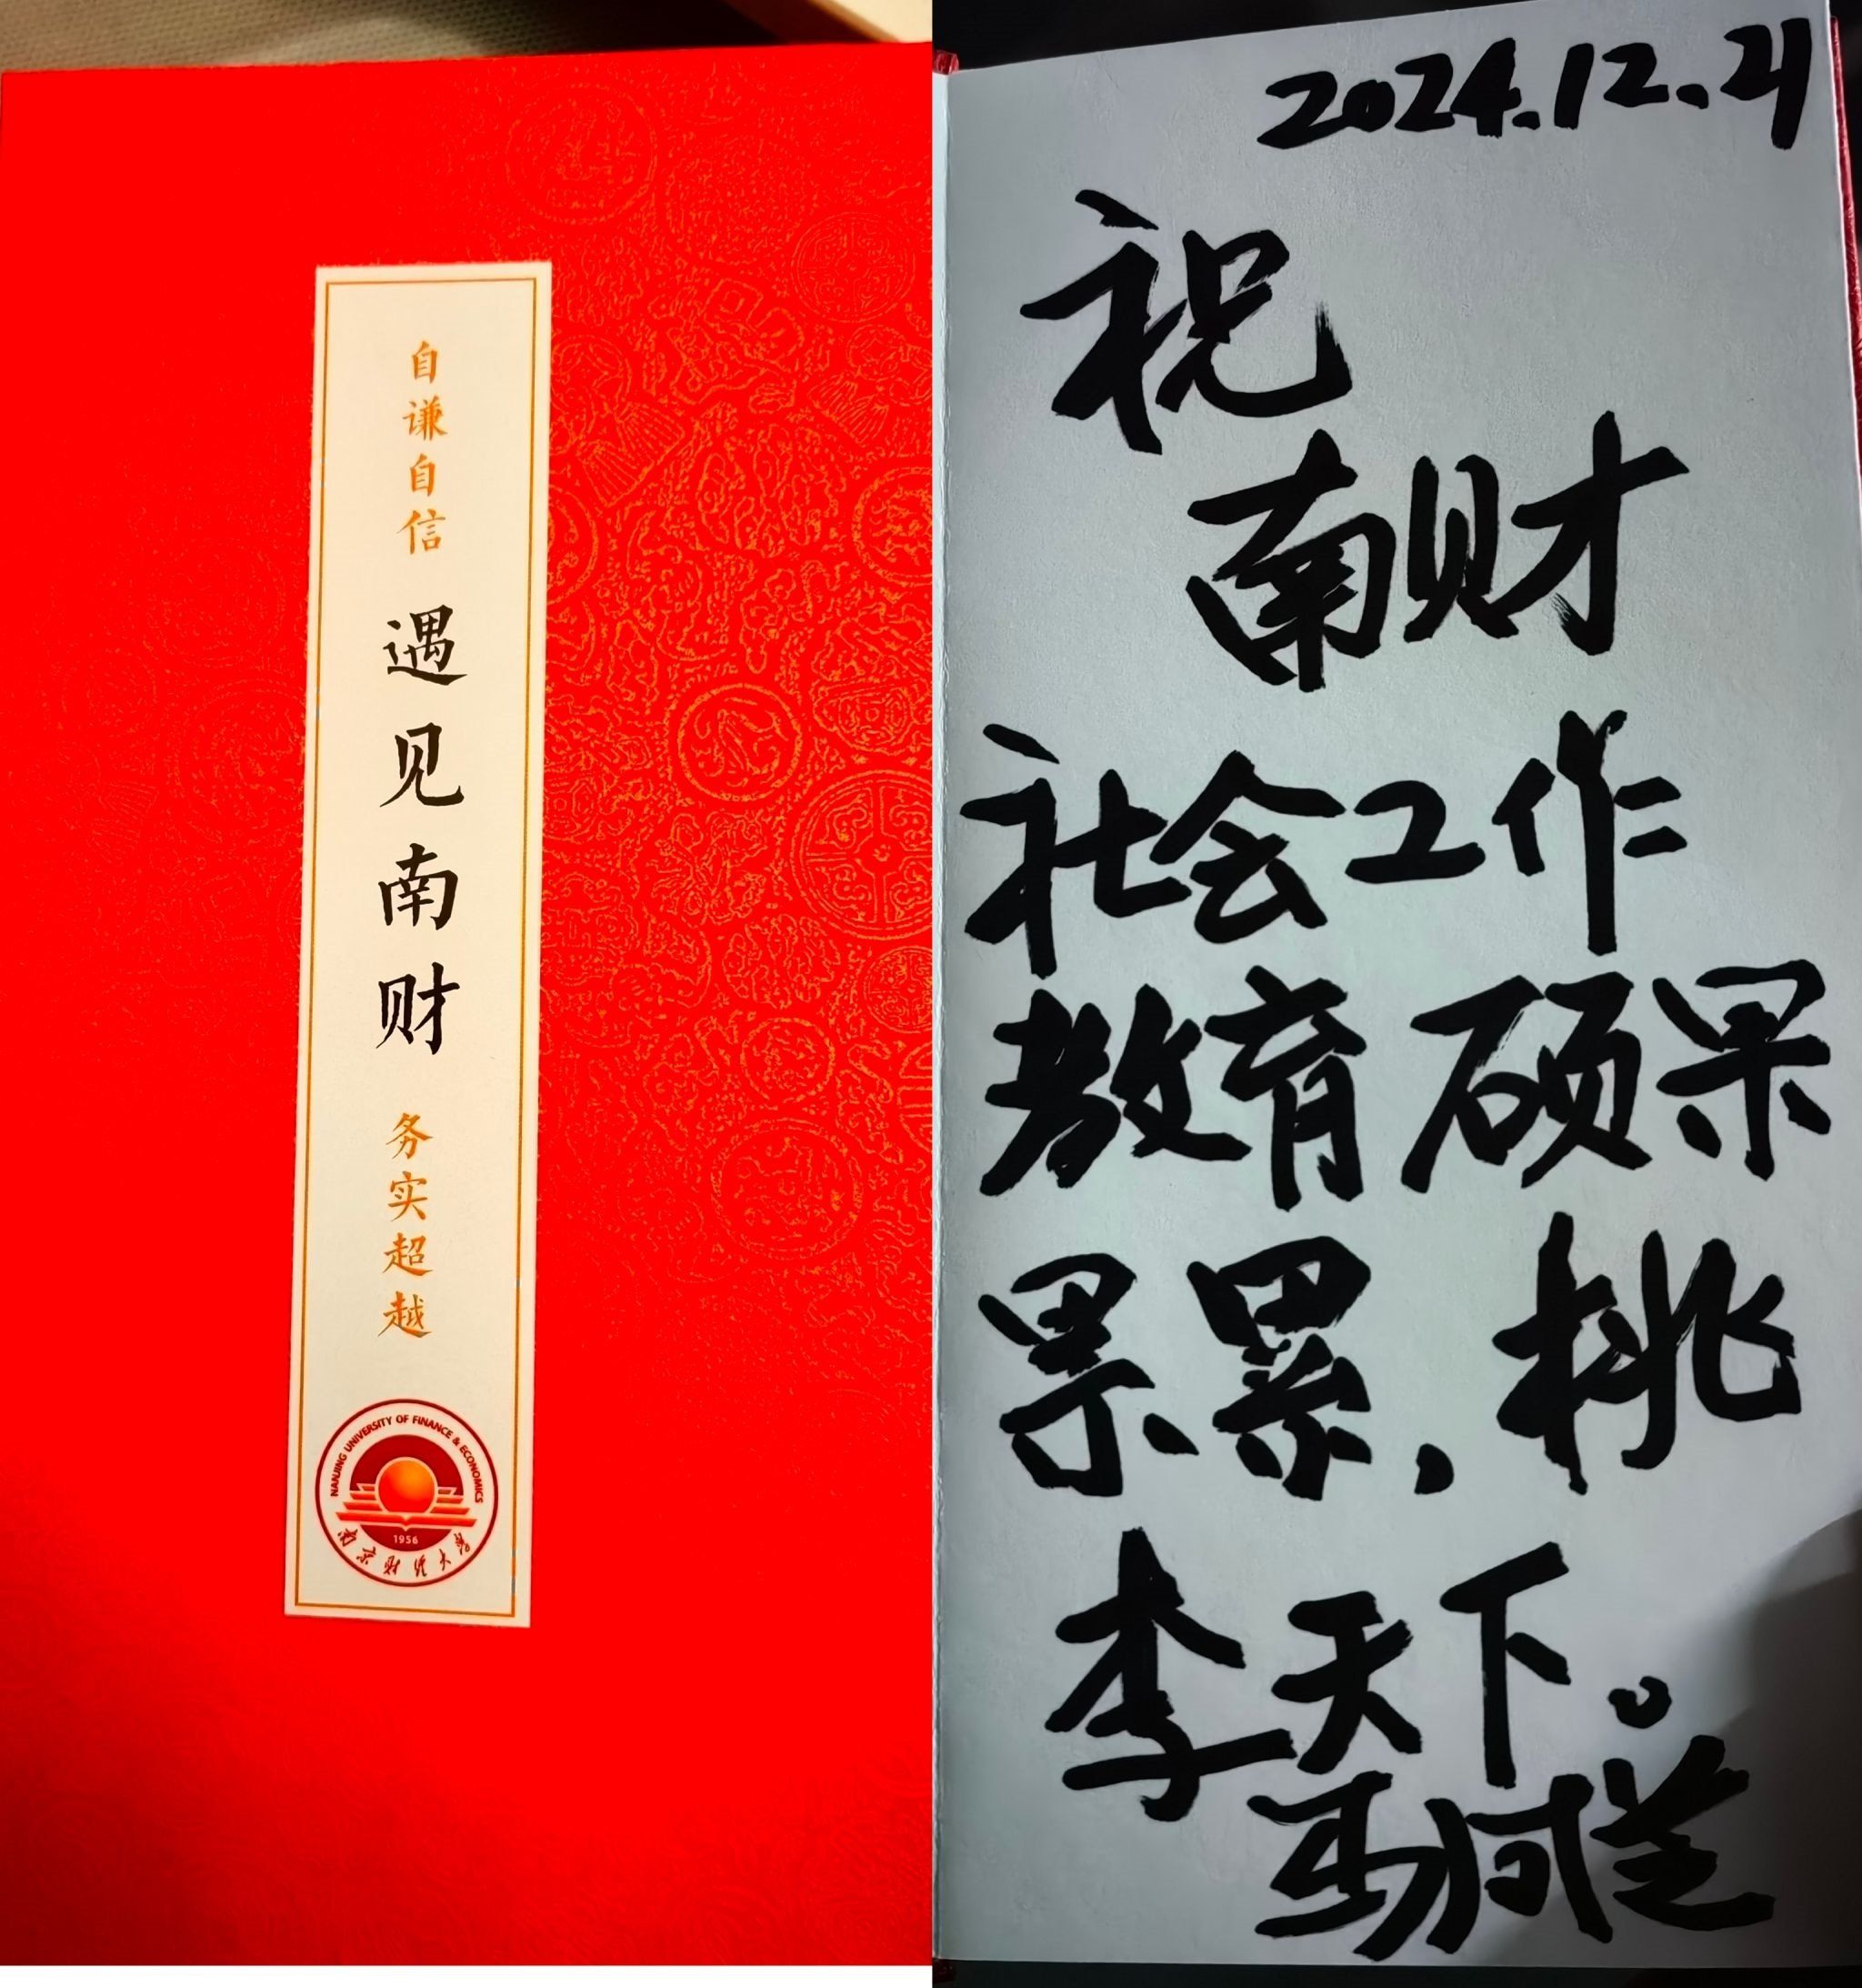 自谦自信
遇见南财
务实超越
NANJING UNIVERSITY OF FINANCE & ECONOMICS
1956
南京财经大学
2024.12.21
祝
南财
社会工作
教育硕果
累累,桃
李天下。